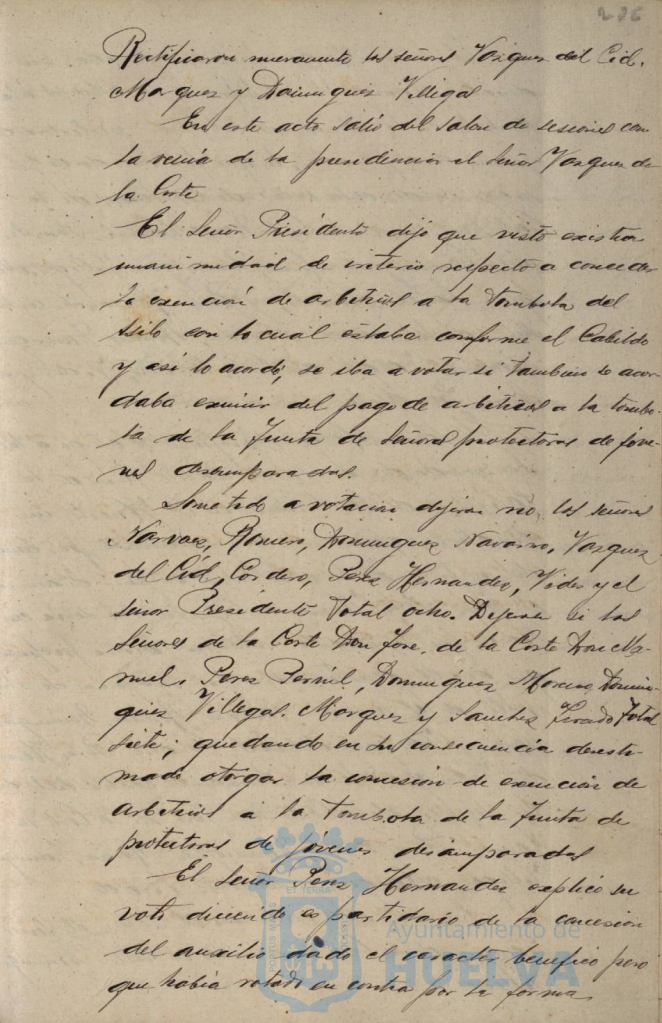 286
Rectificaron nuevamente los señores Vazquez del Cid,
Marquez y Dominguez Villegas
En este acto salió del salon de sesiones con
la venia de la presidencia el Señor Vazquez de
la Corte
El Señor Presidente dijo que visto existia
unanimidad de criterio respecto a conceder
la exención de arbitrios a la tombola del
Asilo con lo cual estaba conforme el Cabildo
y asi lo acordó, se iba a votar si tambien se acor
daba eximir del pago de arbitrios a la tombo-
la de la Junta de Señoras protectoras de jove-
nes desamparadas.
Sometido a votacion dijeron no, los señores
Narvaez, Romero, Dominguez Navarro, Vazquez
del Cid, Cordero, Perez Hernandez, Vides y el
señor Presidente Total ocho. Dijeron si los
Señores de la Corte Don Jose, de la Corte Don Ma-
nuel, Perez Pernil, Dominguez Moreno, Domin-
guez Villegas, Marquez y Sanchez Total
siete; quedando en su consecuencia desesti-
mado otorgar la concesion de exención de
arbitrios a la tombola de la Junta de
protectoras de jóvenes desamparadas
El Señor Perez Hernandez explicó su
voto diciendo es partidario de la concesion
del auxilio dado el caracter benefico pero
que habia votado en contra por la forma
Ayuntamiento de
HUELVA